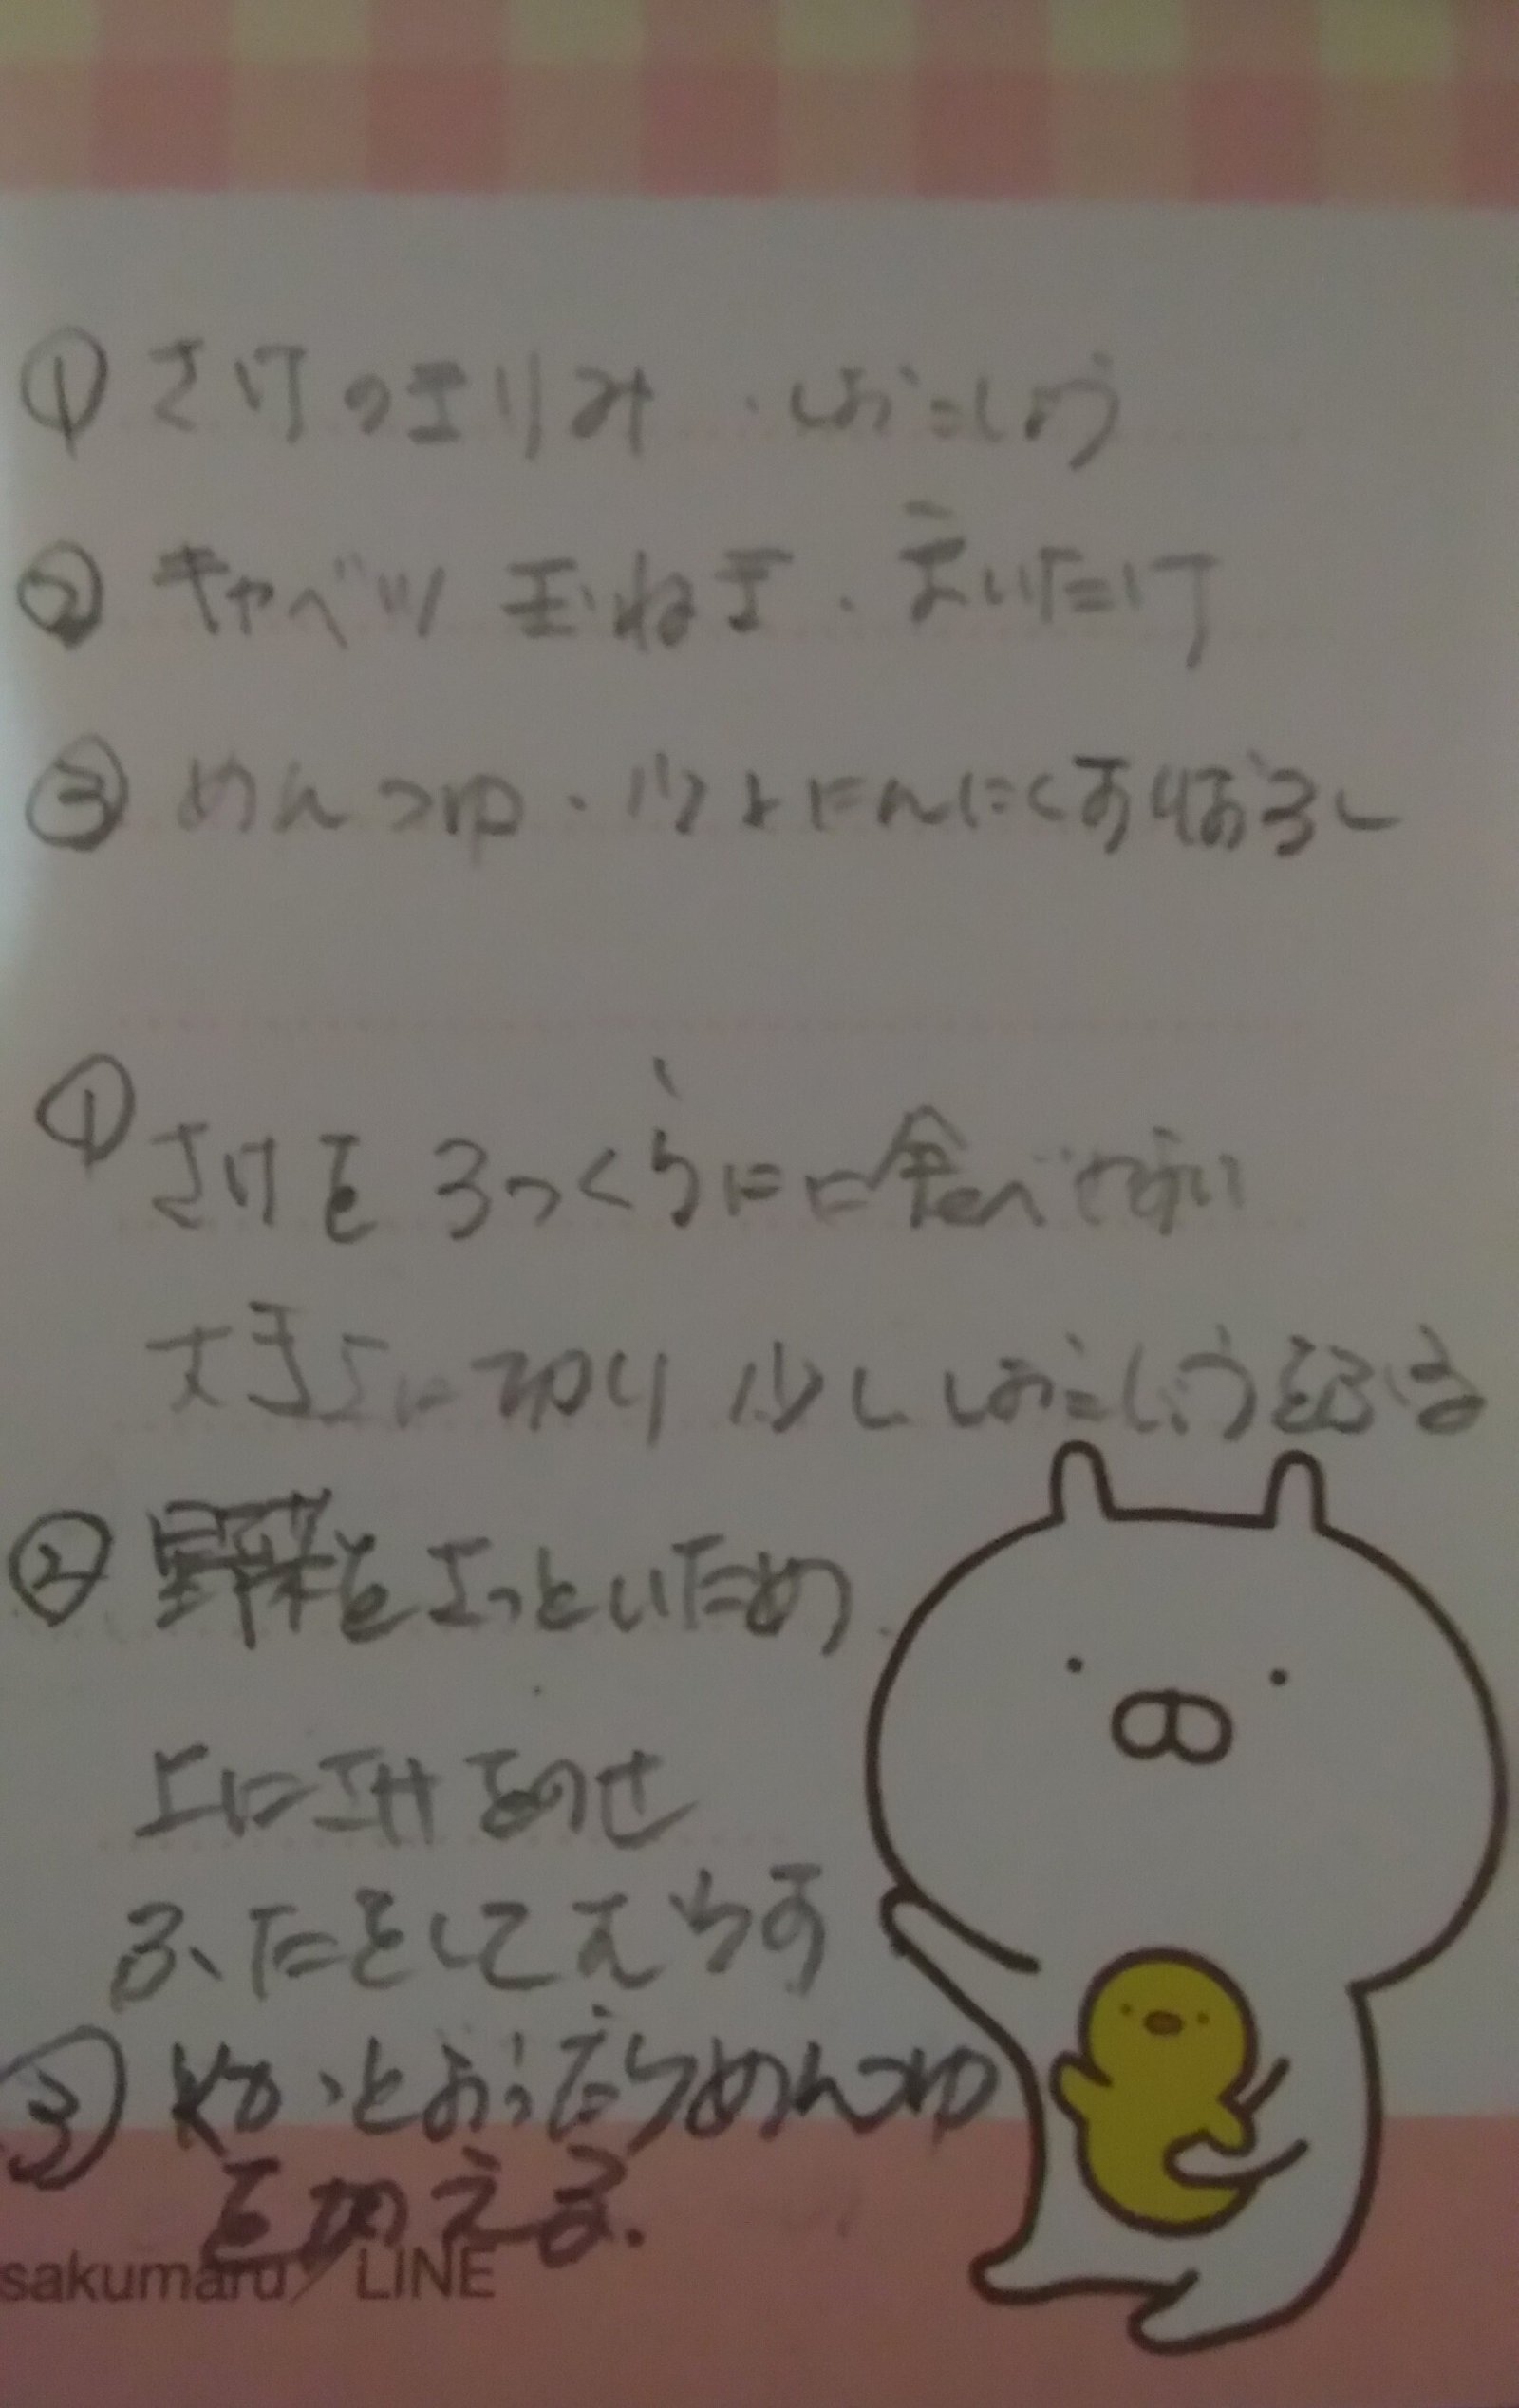 ① さけのきりみ ・しおこしょう
② キャベツ 玉ねぎ・まいたけ
③ めんつゆ・少々にんにくすりおろし
① さけを ふっくらに 食べやすい
大きさに切り 少ししおこしょうをふる
② 野菜をさっといため
上にさけをのせ
ふたをしてむらす
③ 火がとおったらめんつゆ
を加える.
sakumaru/LINE